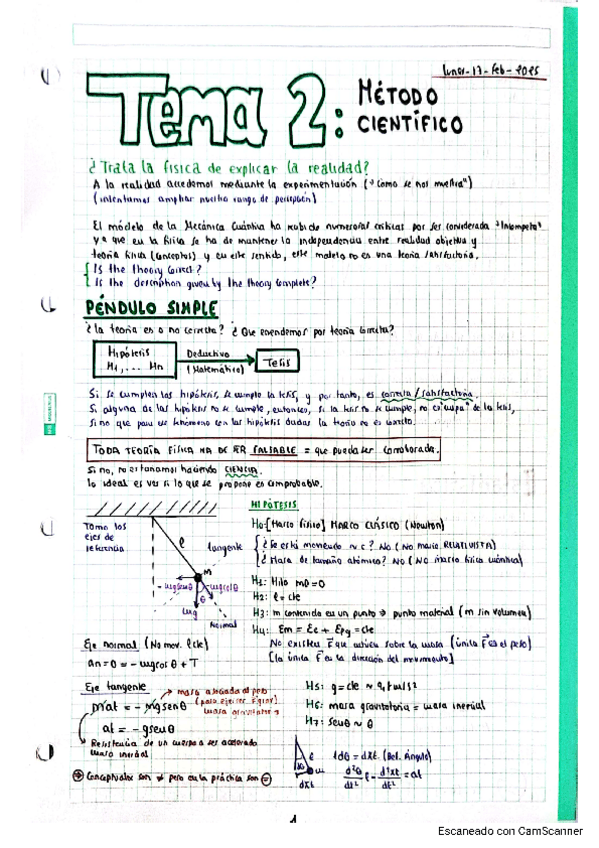 lunes-17-Feb-2025
Tema 2: MÉTODO CIENTÍFICO
¿Trata la física de explicar la realidad?
A la realidad accedemos mediante la experimentación (→"como se nos muestra")
(intentamos ampliar nuestro rango de percepción)
El módelo de la Mecánica Cuántica ha recibido numerosas críticas por ser considerada "Incompleta"
ya que en la física se ha de mantener la independencia entre realidad objetiva y
teoría física (conceptos) y en este sentido, este modelo no es una teoría satisfactoria.
Is the theory correct?
Is the description given by the theory complete?
PÉNDULO SIMPLE
¿la teoría es o no correcta? ¿Que entendemos por teoría correcta?
Hipótesis
H1, ... Hn
Deductivo
(Matemático)
Tesis
Si se cumplen las hipótesis, se cumple la tesis, y por tanto, es correcta/satisfactoria.
Si alguna de las hipótesis no se cumple, entonces, si la tesis no se cumple, no es "culpa" de la tesis,
sino que para ese fenómeno con las hipótesis dadas la teoría no es correcta.
TODA TEORÍA FÍSICA HA DE SER FALSABLE = que pueda ser corroborada.
Si no, no estaríamos haciendo CIENCIA.
lo ideal es ver si lo que se propone es comprobable.
Tomo los
ejes de
referencia
l
tangente
M
-mgsenθ
-mgcosθ
θ
mg
Normal
HIPÓTESIS
H0:[Marco físico] MARCO CLÁSICO (Newton)
¿Se está moviendo ~ c? NO (No marco RELATIVISTA)
¿Masa de tamaño atómico? NO (NO marco física cuántica)
H1: Hilo m=0
H2: l = cte
H3: m contenida en un punto ⇒ punto material (m sin volumen)
H4: Em = Ec + Epg = cte
No existen F que actúen sobre la masa (única F es el peso)
[la única F es la dirección del movimiento]
Eje normal (No mov. l cte)
an = 0 = -mgcosθ + T
Eje tangente
masa asociada al peso
(para ejercer Fgrav)
masa gravitatoria
mat = -mgsenθ
at = -gsenθ
Resistencia de un cuerpo a ser acelerado
masa inercial
Conceptualmente son ≠ pero en la práctica son =
H5: g = cte ≈ 9,8 m/s²
H6: masa gravitatoria = masa inercial
H7: senθ ≈ θ
dθ
l
m
dXt
ldθ = dXt (Def. Ángulo)
d²θ/dt² l = d²Xt/dt² = at
1
Escaneado con CamScanner